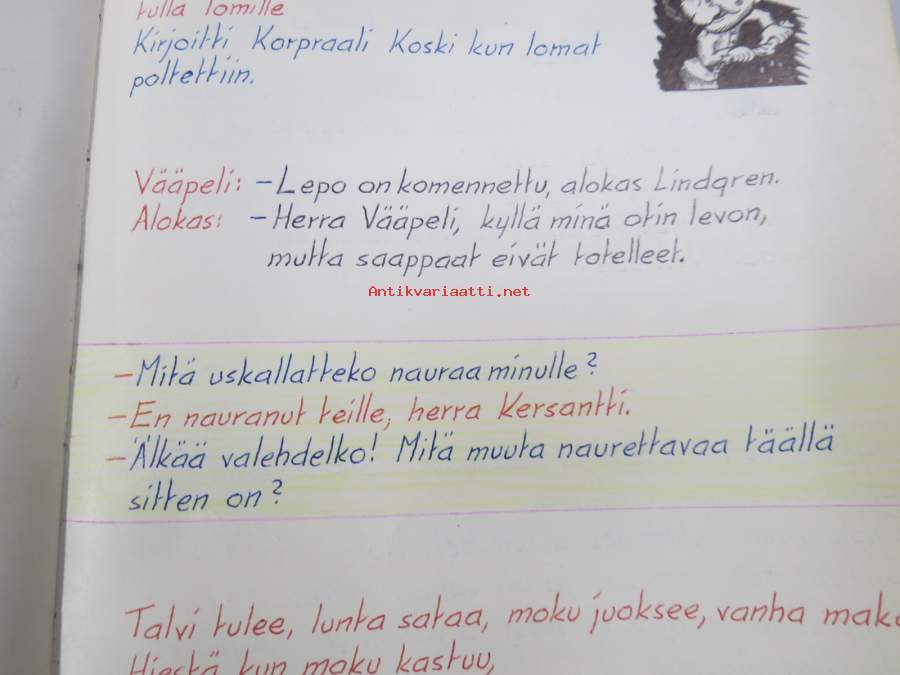 tulla lomille
Kirjoitti Korpraali Koski kun lomat
poltettiin.
Vääpeli: - Lepo on komennettu, alokas Lindqren.
Alokas: - Herra Vääpeli, kyllä minä otin levon,
mutta saappaat eivät totelleet.
Antikvariaatti.net
- Mitä uskallatteko nauraa minulle?
- En nauranut teille, herra Kersantti.
- Älkää valehdelko! Mitä muuta naurettavaa täällä
sitten on?
Talvi tulee, lunta sataa, moku juoksee, vanha
Hiestä kun moku kastuu,